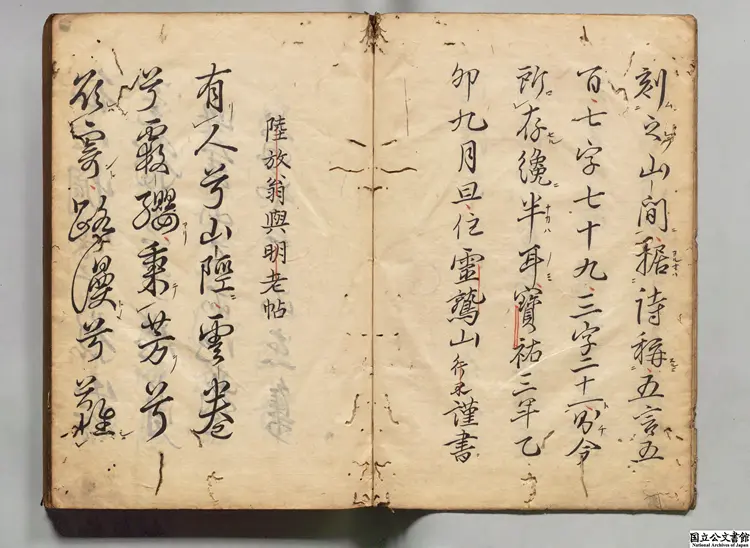 刻之山間据詩稱五言五
百七字七十九三字二十一今
所存纔半耳寶祐三年乙
卯九月旦住靈鷲山行果謹書
陸放翁與明老帖
有人兮山陘雲卷
兮霞纓秉芳兮
欲寄路漫兮難
国立公文書館
National Archives of Japan